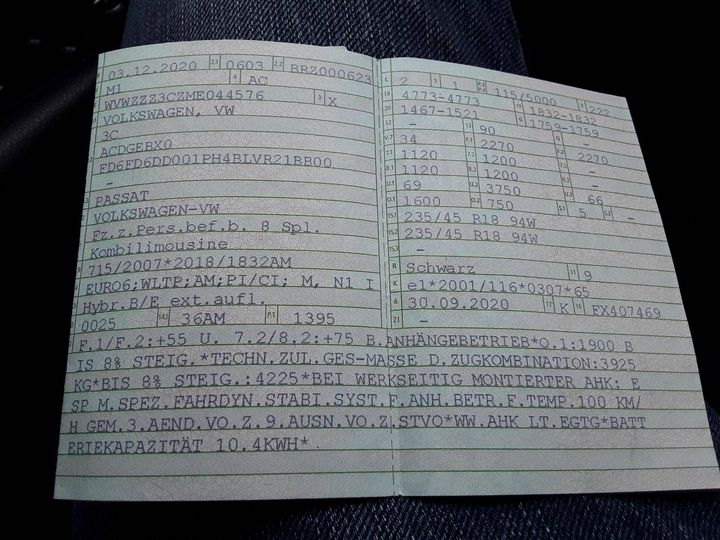 03.12.2020 2.1 0603 2.2 BRZ000623
M1 4 AC
WVWZZZ3CZME044576 3 X
VOLKSWAGEN, VW
3C
ACDGEBX0
FD6FD6DD001PH4BLVR21BB00
-
PASSAT
VOLKSWAGEN-VW
Fz.z.Pers.bef.b. 8 Spl.
Kombilimousine
715/2007*2018/1832AM
EURO6;WLTP;AM;PI/CI; M, N1 I
Hybr.B/E ext.aufl.
0025 14.1 36AM P.1 1395
L 2 9 1 P.2 P.4 115/5000 T 222
18 4773-4773 19 1832-1832
20 1467-1521 G 1759-1759
12 - 13 90 Q -
V.7 34 F.1 2270 F.2 2270
7.1 1120 7.2 1200 7.3 -
8.1 1120 8.2 1200 8.3 -
U.1 69 U.2 3750 U.3 66
O.1 1600 O.2 750 S.1 5 S.2 -
15.1 235/45 R18 94W
15.2 235/45 R18 94W
15.3 -
R Schwarz 11 9
K e1*2001/116*0307*65
6 30.09.2020 17 K 16 FX407469
21 -
F.1/F.2:+55 U. 7.2/8.2:+75 B.ANHÄNGEBETRIEB*O.1:1900 B
IS 8% STEIG.*TECHN.ZUL.GES-MASSE D.ZUGKOMBINATION:3925
KG*BIS 8% STEIG.:4225*BEI WERKSEITIG MONTIERTER AHK: E
SP M.SPEZ.FAHRDYN.STABI.SYST.F.ANH.BETR.F.TEMP.100 KM/
H GEM.3.AEND.VO.Z.9.AUSN.VO.Z.STVO*WW.AHK LT.EGTG*BATT
ERIEKAPAZITÄT 10.4KWH*